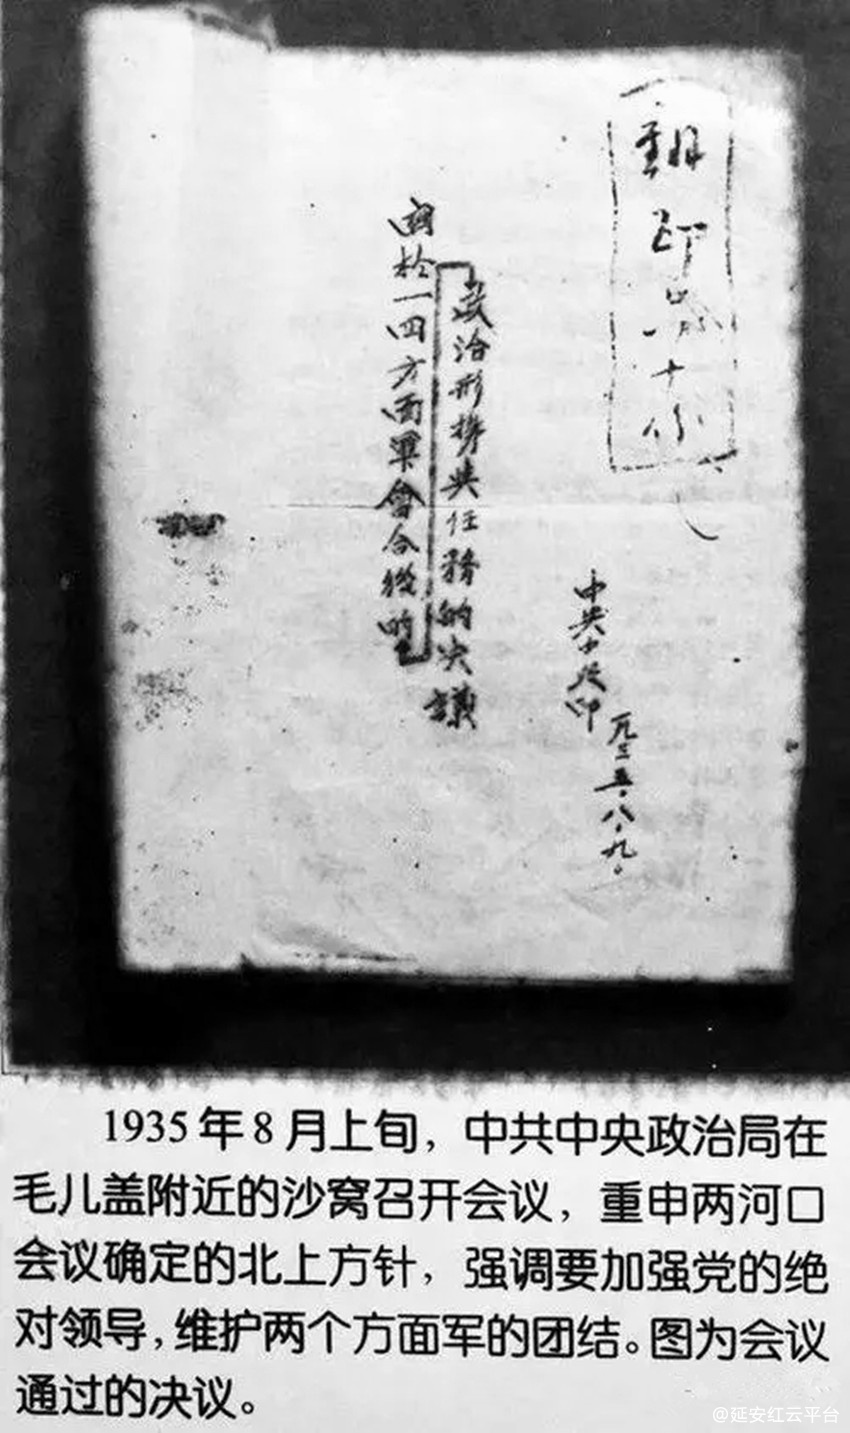 翻印
一九三五.八.九.
關於一四方面軍會合後的
政治形势與任務的决議
1935年8月上旬，中共中央政治局在
毛儿盖附近的沙窝召开会议，重申两河口
会议确定的北上方针，强调要加强党的绝
对领导，维护两个方面军的团结。图为会议
通过的决议。
@延安红云平台